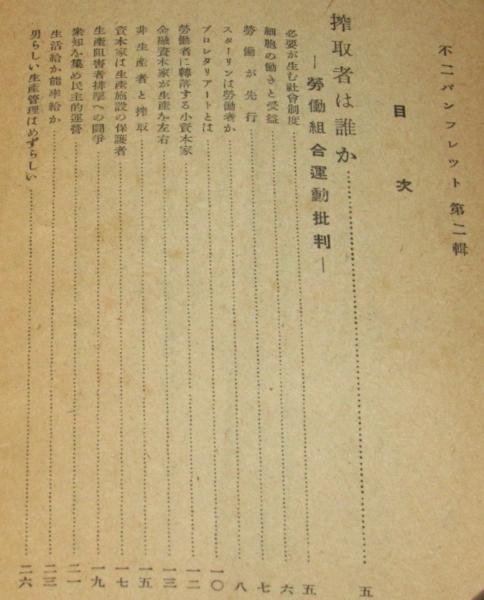 不二パンフレット 第二輯
目次
搾取者は誰か……………五
―勞働組合運動批判―
必要が生む社會制度……………五
細胞の働きと受益……………六
勞働が先行……………七
スターリンは勞働者か……………八
プロレタリアートとは……………一〇
勞働者に轉落する小資本家……………一二
金融資本家が生産を左右……………一三
非生産者と搾取……………一五
資本家は生産施設の保護者……………一七
生産阻害者排撃への鬪爭……………一九
衆知を集め民主的運營……………二一
生活給か能率給か……………二三
男らしい生産管理はめずらしい……………二六